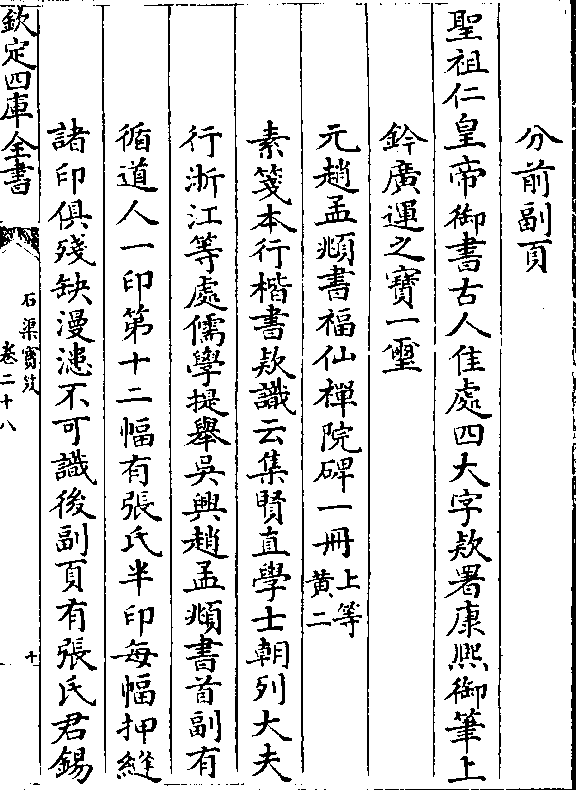 分前副頁
聖祖仁皇帝御書古人佳處四大字欵署康熙御筆上
鈐廣運之寶一璽
元趙孟頫書福仙禪院碑一冊上等黄二
素箋本行楷書欵識云集賢直學士朝列大夫
行浙江等處儒學提舉吳興趙孟頫書首副有
循道人一印第十二幅有張氏半印每幅押縫
諸印俱殘缺漫漶不可識後副頁有張氏君錫
欽定四庫全書
石渠寶笈
卷二十八
十